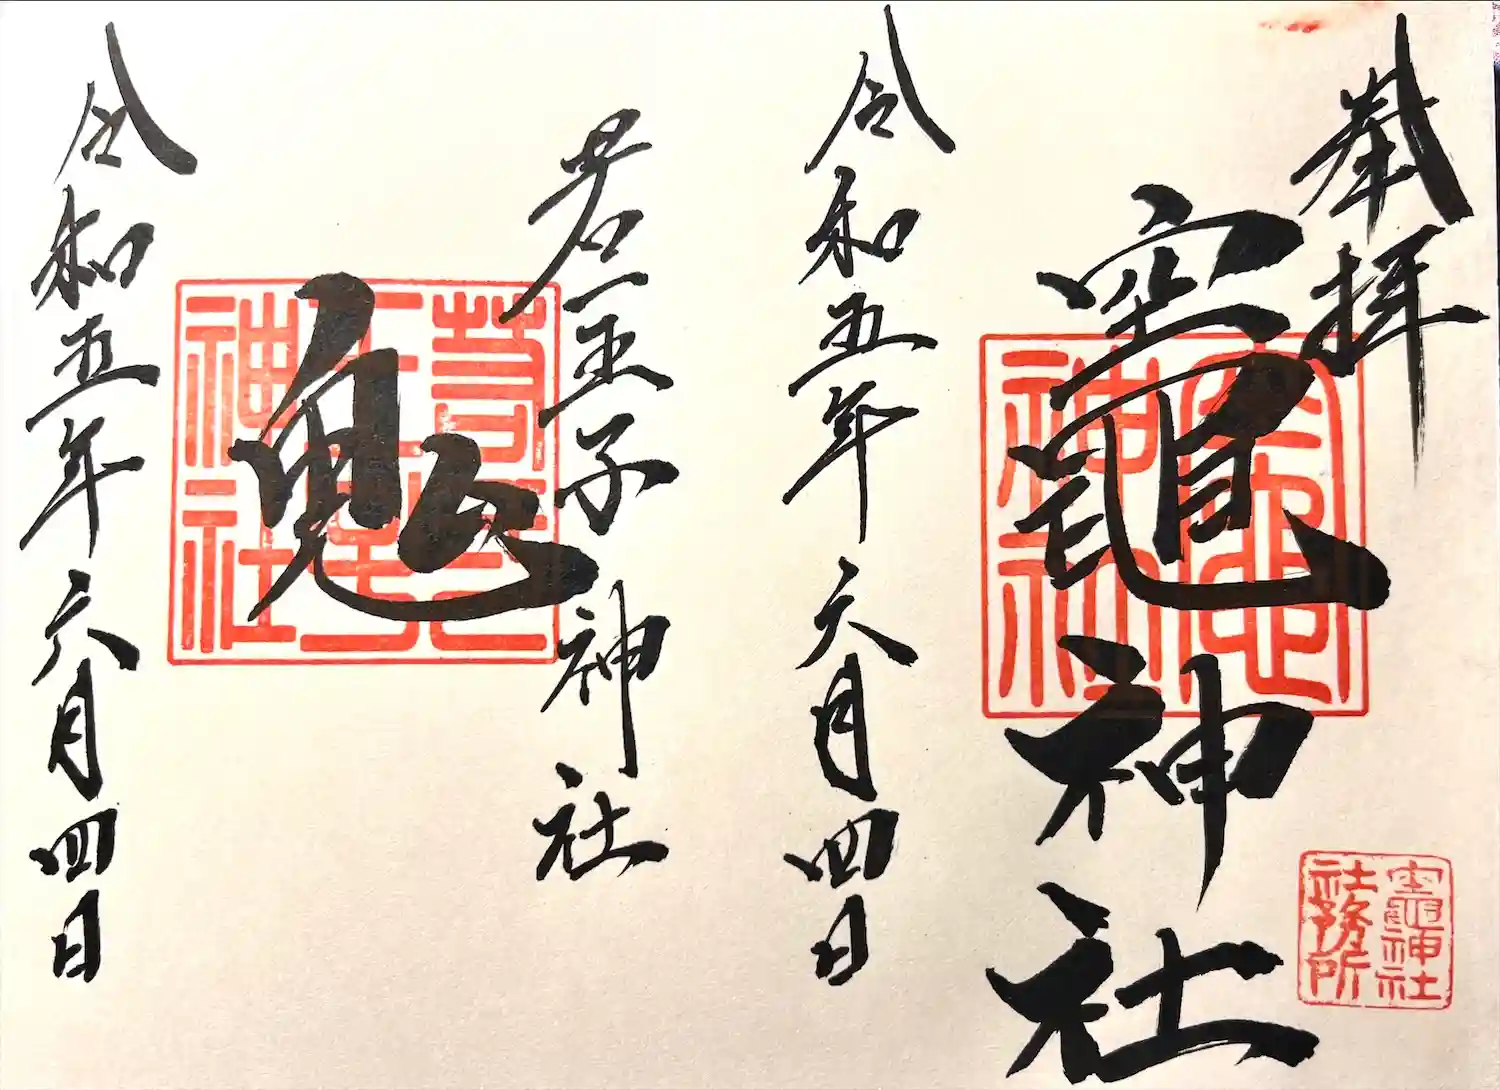 奉拝
竈神社
竈
神社
竈神社
社務所
令和五年六月四日
若一王子神社
鬼
若一
王子
神社
令和五年六月四日